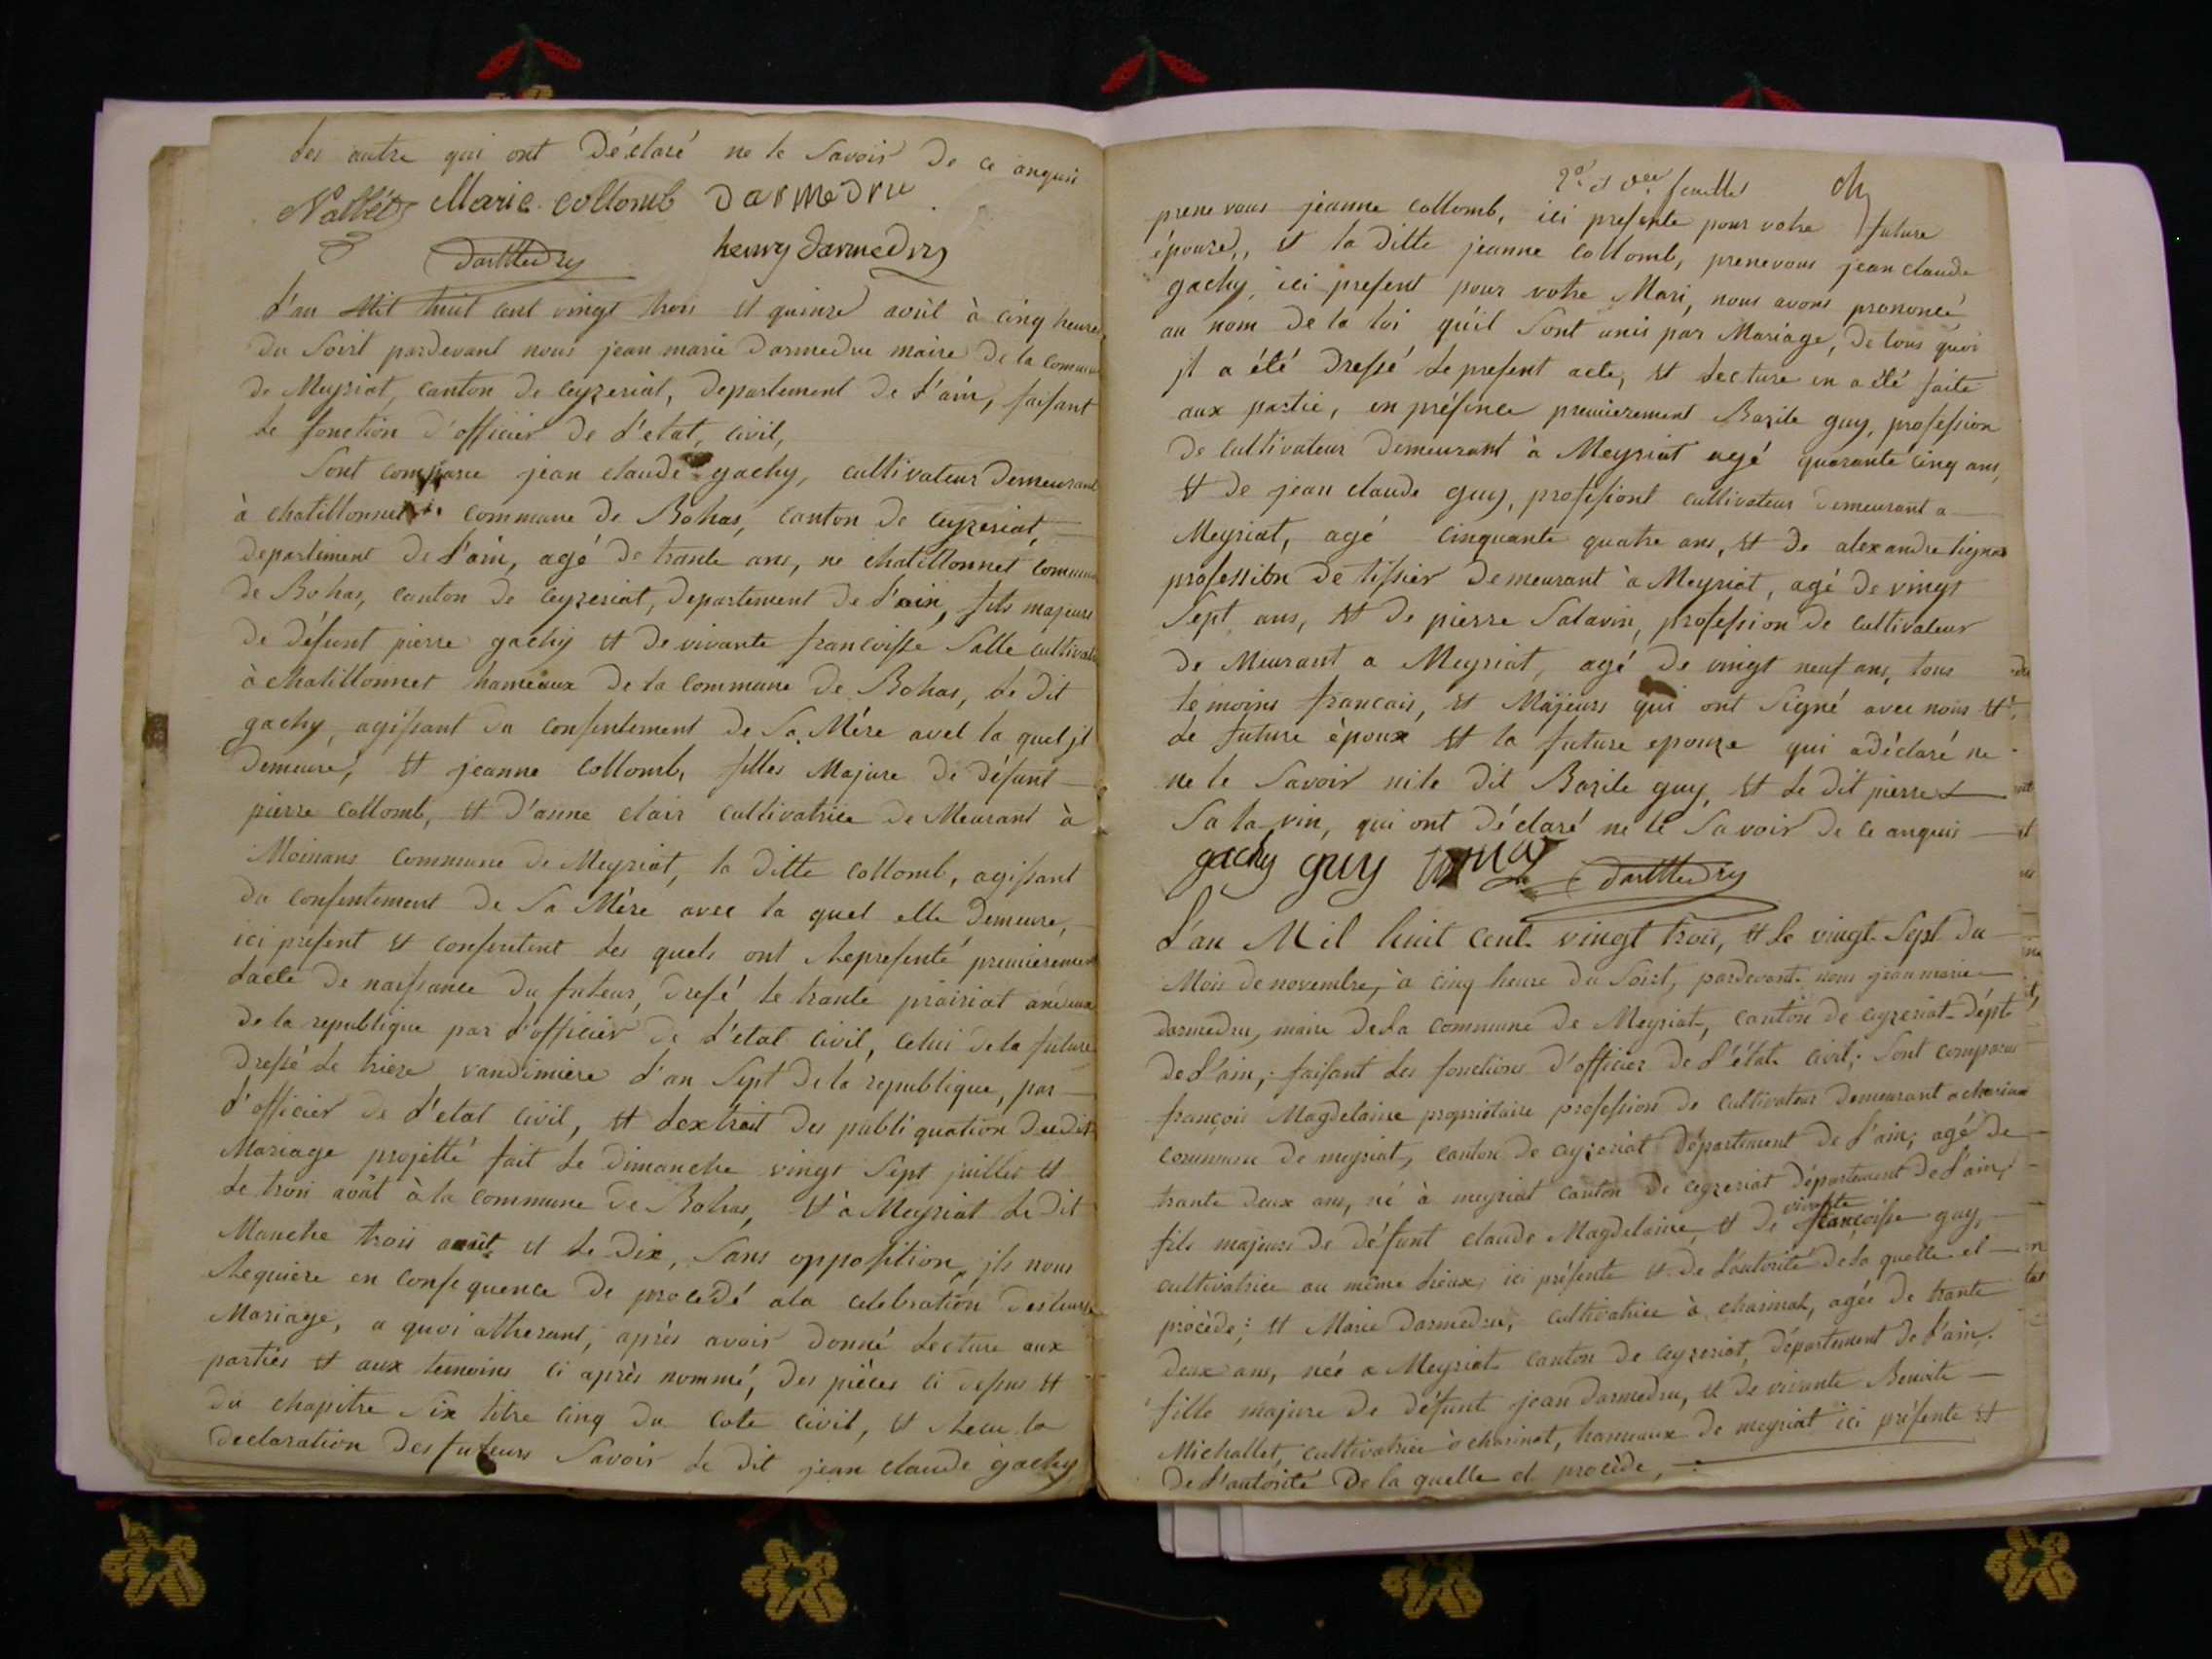 Les autre qui ont Déclaré ne le Savoir De ce anquis
Nallet Marie collomb Darmedru
Darmedru henry Darmedru
L'an Mil huit cent vingt trois et quinze août à cinq heures
Du Soirt pardevant nous jean marie Darmedru maire De la commune
De Meyriat, canton De ceyzeriat, Departement De L'ain, faisant
Le fonction d'officier De L'etat, civil,
Sont comparue jean claude gachy, cultivateur Demeurant
à chatillonnet commune De Bohas, canton De ceyzeriat,
Departement De L'ain, agé De trante ans, ne chatillonnet commune
De Bohas, canton De ceyzeriat, Departement De L'ain, fils majeurs
De Défunt pierre gachy et De vivante francoisse Salle
à chatillonnet hameaux De la commune De Bohas, Le Dit
gachy, agissant Du consentement De Sa Mére avel la quel jl
Demeure, et jeanne Collomb, filles Majure De Défunt
pierre collomb, et D'anne clair cultivatrice De Meurant à
Moinans commune De Meyriat, la Ditte collomb, agissant
Du consentement De Sa Mère avec la quel elle Demeure,
ici present et consentent Les quels ont Representé premièrement
Lacte De naissance Du futeur, Dressé le trante prairiat
De la republique par L'officier De L'etat civil, celui De la future
Dressé Le trieze vandimiere L'an Sept De la republique, par
L'officier De L'etat civil, et Lextrait Des publiquation Dudit
Mariage projetté fait Le Dimanche vingt Sept juillet et
Le trois août à la commune De Bohas, et à Meyriat Le Dit
Manche trois août et Le Dix, Sans opposition, jls nous
Requiere en consequence De procedé ala celebration Desleurs
Mariage, a quoi attherant, après avoir Donné Lecture aux
parties et aux temoins ci après nommé, Des pièces ci Dessus et
Du chapitre Six titre cinq Du cote civil, et Recu la
Declaration Des futeurs Savoir Le Dit jean claude gachy
2e et Der feuillet
prene vous jeanne collomb, ici presente pour votre future
épouze,, et la Ditte jeanne Collomb, prenevous jean claude
gachy, ici present pour votre Mari, nous avons prononcé
au nom De la loi qu'il Sont unis par Mariage, De tous quoi
jl a été Dressé Le present acte, et Lecture en a été faite
aux partie, en présence premierement Bazile guy, profession
De cultivateur Demeurant à Meyriat agé quarante cinq ans,
et De jean claude guy, professiont cultivateur Demeurant a
Meyriat, agé cinquante quatre ans, et De alexandre
profession De tissier Demeurant à Meyriat, agé De vingt
Sept ans, et De pierre Salavin, profession De cultivateur
De Meurant a Meyriat, agé De vingt neuf ans, tous
te moins francais, et Majeurs qui ont Signé avec nous et
Le future époux et la future epouze qui a Déclaré ne
ne le Savoir ni le Dit Bazile guy, et Le Dit pierre
Sa la vin, qui ont Déclaré ne le Savoir De ce anquis
gachy guy Darmedru
L'an Mil huit cent vingt trois, et Le vingt Sept Du
Mois De novembre, à cinq heure Du Soirt, pardevant nous jean marie
Darmedru, maire De La commune De Meyriat, canton De ceyzeriat Dépt
De L'ain, faisant Les fonctions D'officier De L'état civil; Sont comparus
françois Magdelaine propriétaire profession De cultivateur Demeurant a
commune De meyriat, canton De ceyzeriat Département De L'ain, agé De
trante Deux ans, né à meyriat canton De ceyzeriat Département De L'ain,
fils majeurs De Défunt claude Magdelaine, et De vivante françoisse guy,
cultivatrice au même Lieux, ici présente et De L'autorité De La quelle el
procède; et Marie Darmedru, cultivatrice à charinat, agée De trante
Deux ans, née a Meyriat canton De ceyzeriat, Département De L'ain.
fille majure De Défunt jean Darmedru, et De vivante Benoite
Michallet, cultivatrice à charinat, hameaux De meyriat ici présente et
De L'autorité De la quelle el procède,